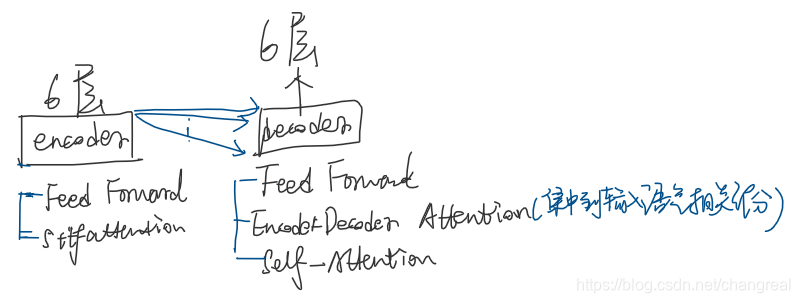 6层
6层
encoder
Decoder
Feed Forward
Self attention
Feed Forward
Encoder-Decoder Attention(集中到输入语句相关部分)
Self-Attention
https://blog.csdn.net/changreal